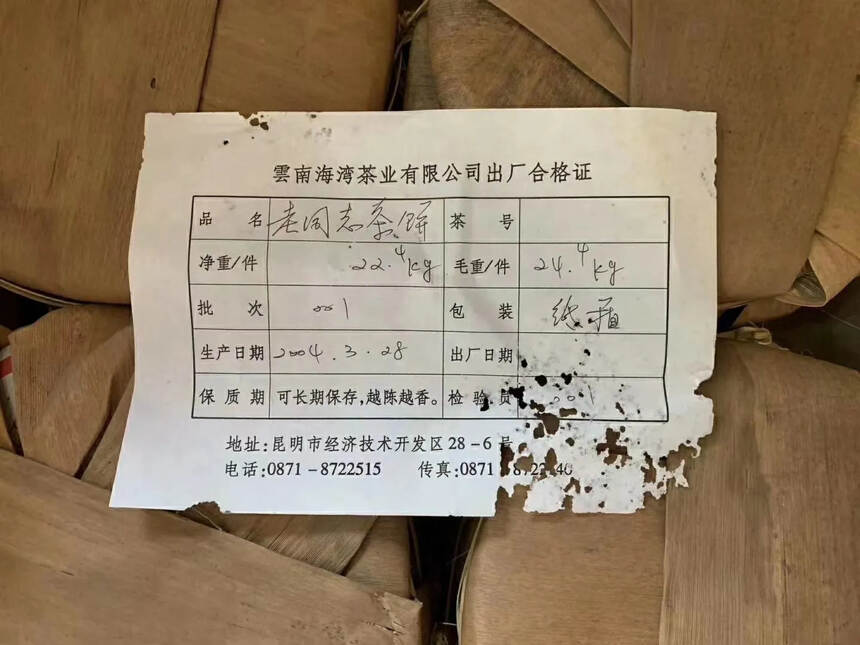 雲南海湾茶业有限公司出厂合格证
品名 老同志茶饼 茶号
净重/件 22.4kg 毛重/件 24.4kg
批次 001 包装 纸箱
生产日期 2004.3.28 出厂日期
保质期 可长期保存,越陈越香。 检验员 001
地址:昆明市经济技术开发区28-6号
电话:0871-8722515 传真:0871